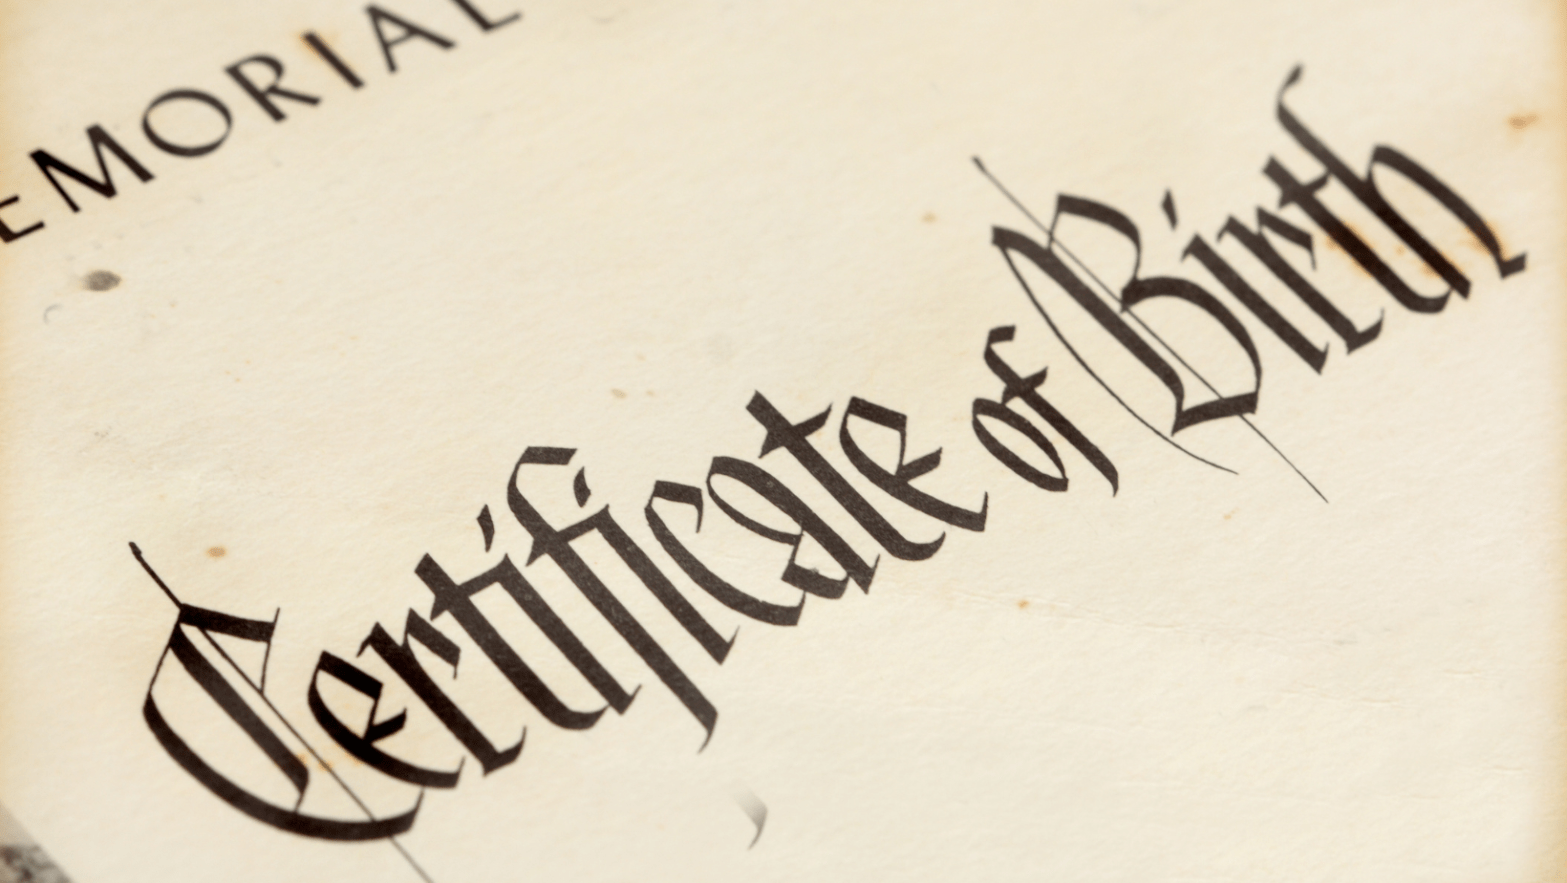 EMORIAL
Certificate of Birth